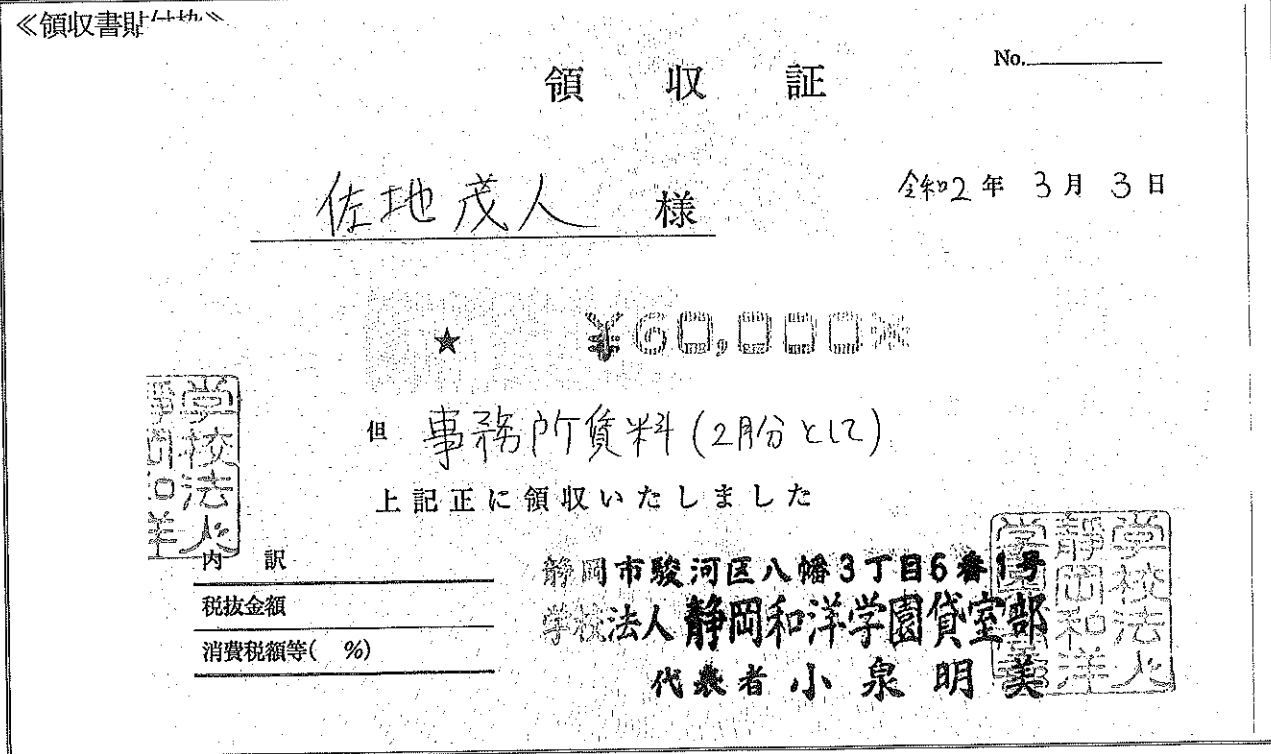 ≪領収書貼付枠≫
No.
領収証
佐地茂人 様
令和2年3月3日
★ ¥60,000※
但 事務所賃料(2月分として)
上記正に領収いたしました
内訳
税抜金額
消費税額等( %)
静岡市駿河区八幡3丁目6番1号
学校法人静岡和洋学園貸室部
代表者 小泉明美
学校法人
静岡和洋